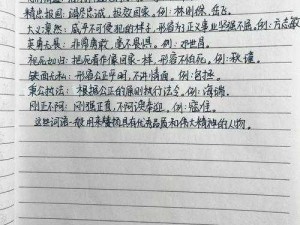 精忠报国：竭尽忠诚，报效国家。例：林则徐、岳飞。
大义凛然：威严不可侵犯的样子，形容为正义事业坚强不屈。例：方志敏
英勇无畏：非常勇敢，毫不畏惧。例：邓世昌。
视死如归：把死看作像回家一样，形容不怕死。例：秋瑾。
铁面无私：形容公正严明，不讲情面。例：包拯。
秉公执法：根据公正的原则执行法令。例：海瑞。
刚正不阿：刚强正直，不阿谀奉迎。例：
这些词语一般用来赞扬具有优秀品质和伟大精神的人物。